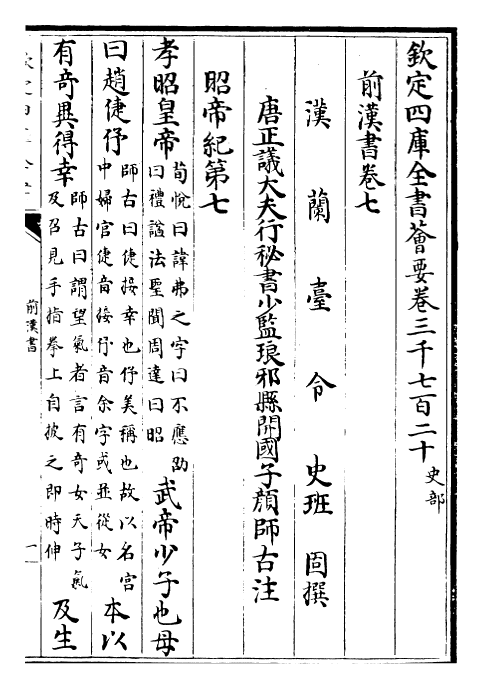 欽定四庫全書薈要卷三千七百二十 史部
前漢書卷七
漢蘭臺令史班固撰
唐正議大夫行秘書少監琅邪縣開國子顏師古注
昭帝紀第七
孝昭皇帝荀悅曰諱弗之字曰不應劭曰禮諡法聖聞周達曰昭武帝少子也母
曰趙倢伃師古曰倢接幸也伃美稱也故以名宮中婦官倢音接伃音余字或並從女本以
有奇異得幸師古曰謂望氣者言有奇女天子氣及召見手指拳上自披之即時伸及生
前漢書
一